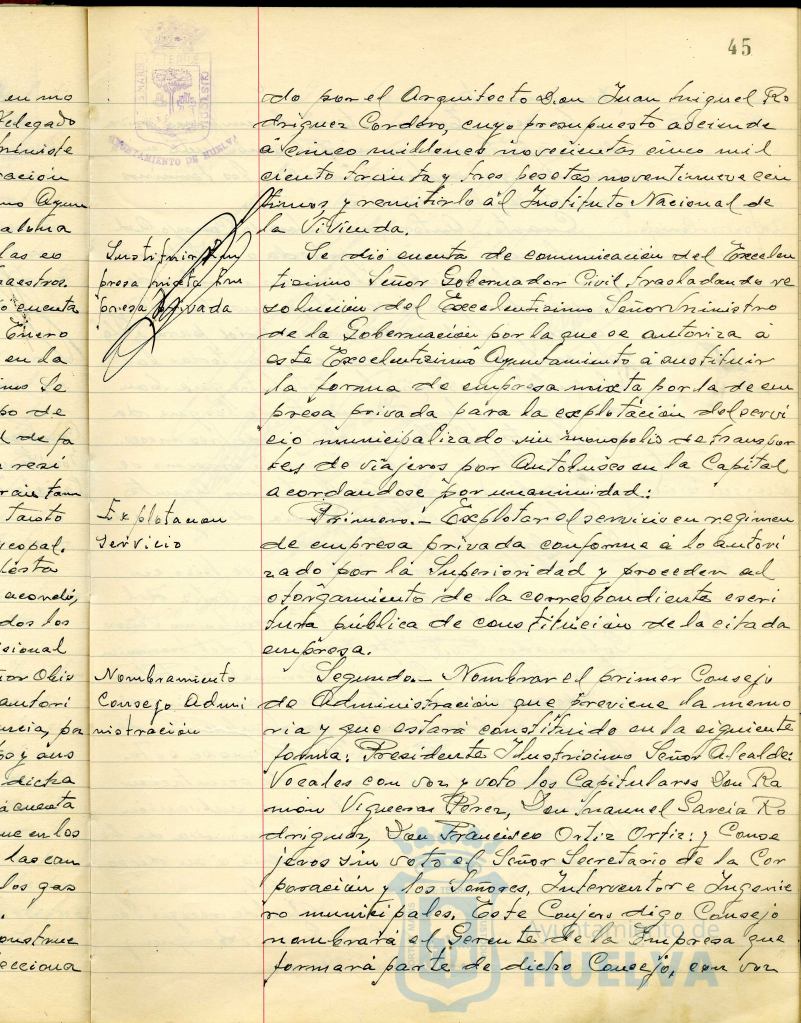 45
en mo
elegado
ministe
ración
mo Ayun
las co
maestros.
o cuenta
Enero
en la
imo Se
po de
d de fa
resi
tanto
iscopal.
acordó,
dos los
isional
ñor Obis
autori
ncia, pa
po y sus
dicha
á cuenta
ue en los
las can
los gas
onstruc
ecciona
AYUNTAMIENTO DE HUELVA
Sustituir Em
presa mixta Em
presa privada
Explotacion
servicio
Nombramiento
Consejo Admi
nistración
do por el Arquitecto Don Juan Miguel Ro
driguez Cordero, cuyo presupuesto asciende
á cinco millones novecientas cinco mil
ciento treinta y tres pesetas noventinueve cén
timos y remitirlo al Instituto Nacional de
la Vivienda.
Se dió cuenta de comunicación del Excelen
tisimo Señor Gobernador Civil trasladando re
solución del Excelentisimo Señor Ministro
de la Gobernación por la que se autoriza á
este Excelentisimo Ayuntamiento á sustituir
la forma de empresa mixta por la de em
presa privada para la explotación del servi
cio municipalizado sin monopolio de transpor
tes de viajeros por Autobuses en la Capital
acordandose por unanimidad:
Primero.- Explotar el servicio en regimen
de empresa privada conforme á lo autori
zado por la Superioridad y proceden al
otorgamiento de la correspondiente escri
tura pública de constitución de la citada
empresa.
Segundo.- Nombrar el primer Consejo
de Administración que previene la memo
ria y que estará constituido en la siguiente
forma: Presidente Ilustrisimo Señor Alcalde:
Vocales con voz y voto los Capitulares Don Ra
món Vigueras Perez, Don Manuel Garcia Ro
driguez, Don Francisco Ortiz Ortiz: y Conse
jeros sin voto el Señor Secretario de la Cor
poración y los Señores, Interventor e Ingenie
ro municipales. Este Conjero digo Consejo
nombrará el Gerente de la Empresa que
formará parte de dicho Consejo, con voz
Ayuntamiento de
HUELVA